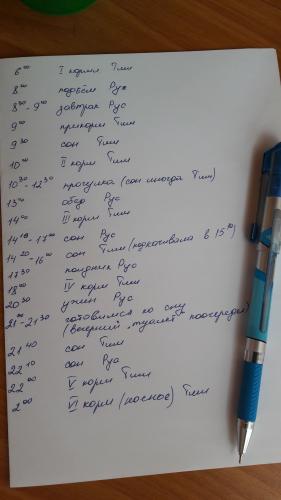 6⁰⁰ I корм Тим
8⁰⁰ подъём Рус
8³⁰ - 9⁰⁰ завтрак Рус
9⁰⁰ прикорм Тим
9³⁰ сон Тим
10⁰⁰ II корм Тим
10³⁰ - 12³⁰ прогулка (сон иногда Тим)
13⁰⁰ обед Рус
14⁰⁰ III корм Тим
14¹⁵ - 17⁰⁰ сон Рус
14²⁰ - 16⁰⁰ сон Тим (подкачивала в 15¹⁰)
17³⁰ полдник Рус
18⁰⁰ IV корм Тим
20³⁰ ужин Рус
21⁰⁰ - 21³⁰ готовимся ко сну
(вечерний "туалет" поочереди)
21⁴⁰ сон Тим
22¹⁰ сон Рус
22⁰⁰ V корм Тим
2⁰⁰ VI корм (ночное) Тим